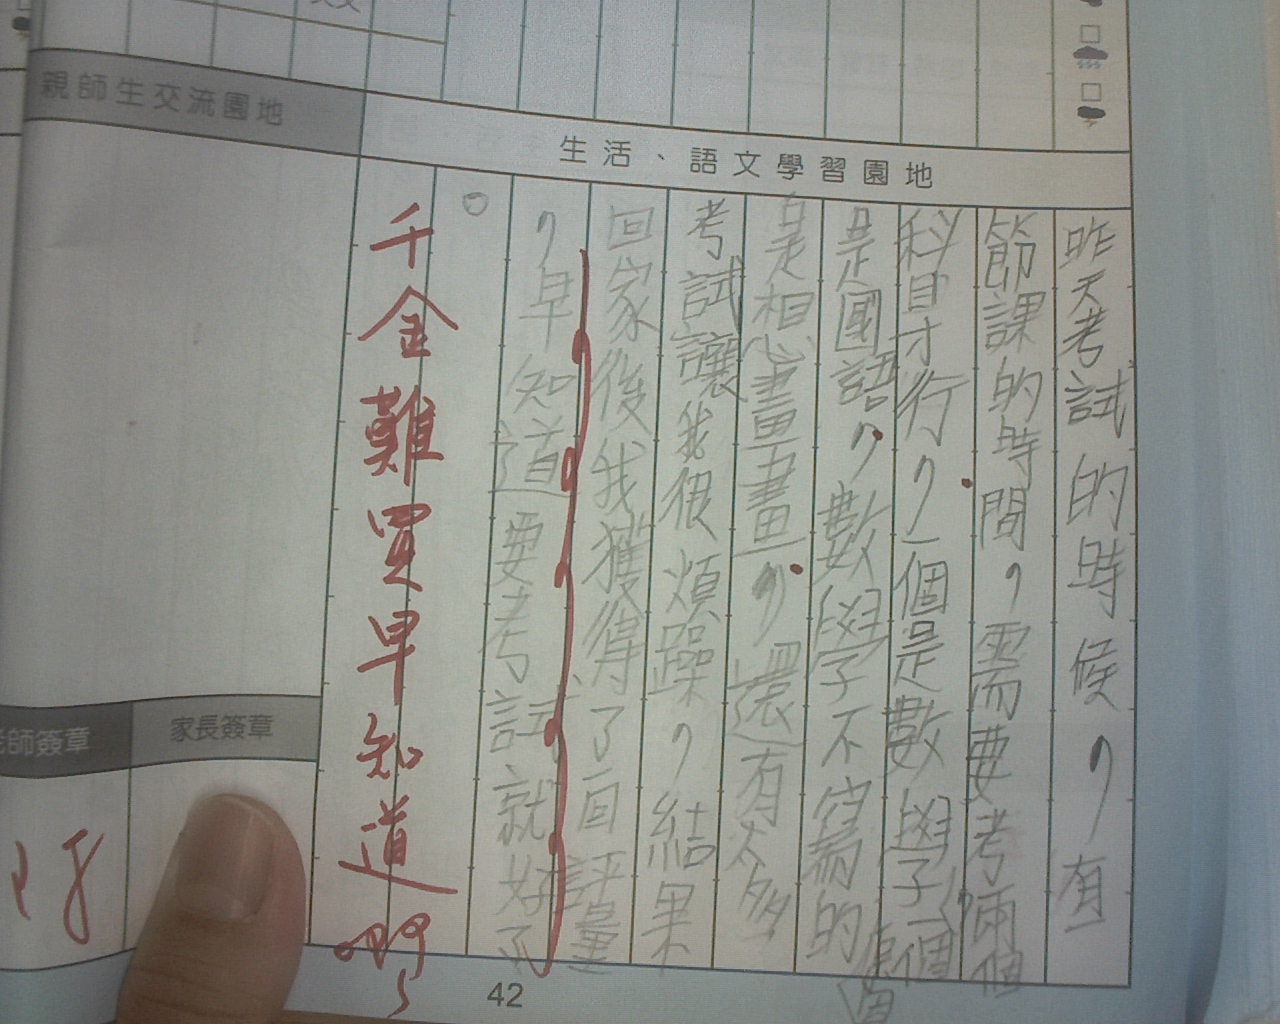 親師生交流園地
生活、語文學習園地
昨天考試的時候，有
節課的時間，需要考兩個
科目才行，一個是數學，一個
是國語，數學不寫的
是相心畫畫，還有太多
考試讓我很煩躁，結果
回家後我獲得了一面評量
，早知道要考試就好了
。
千金難買早知道啊
家長簽章
師簽章
42